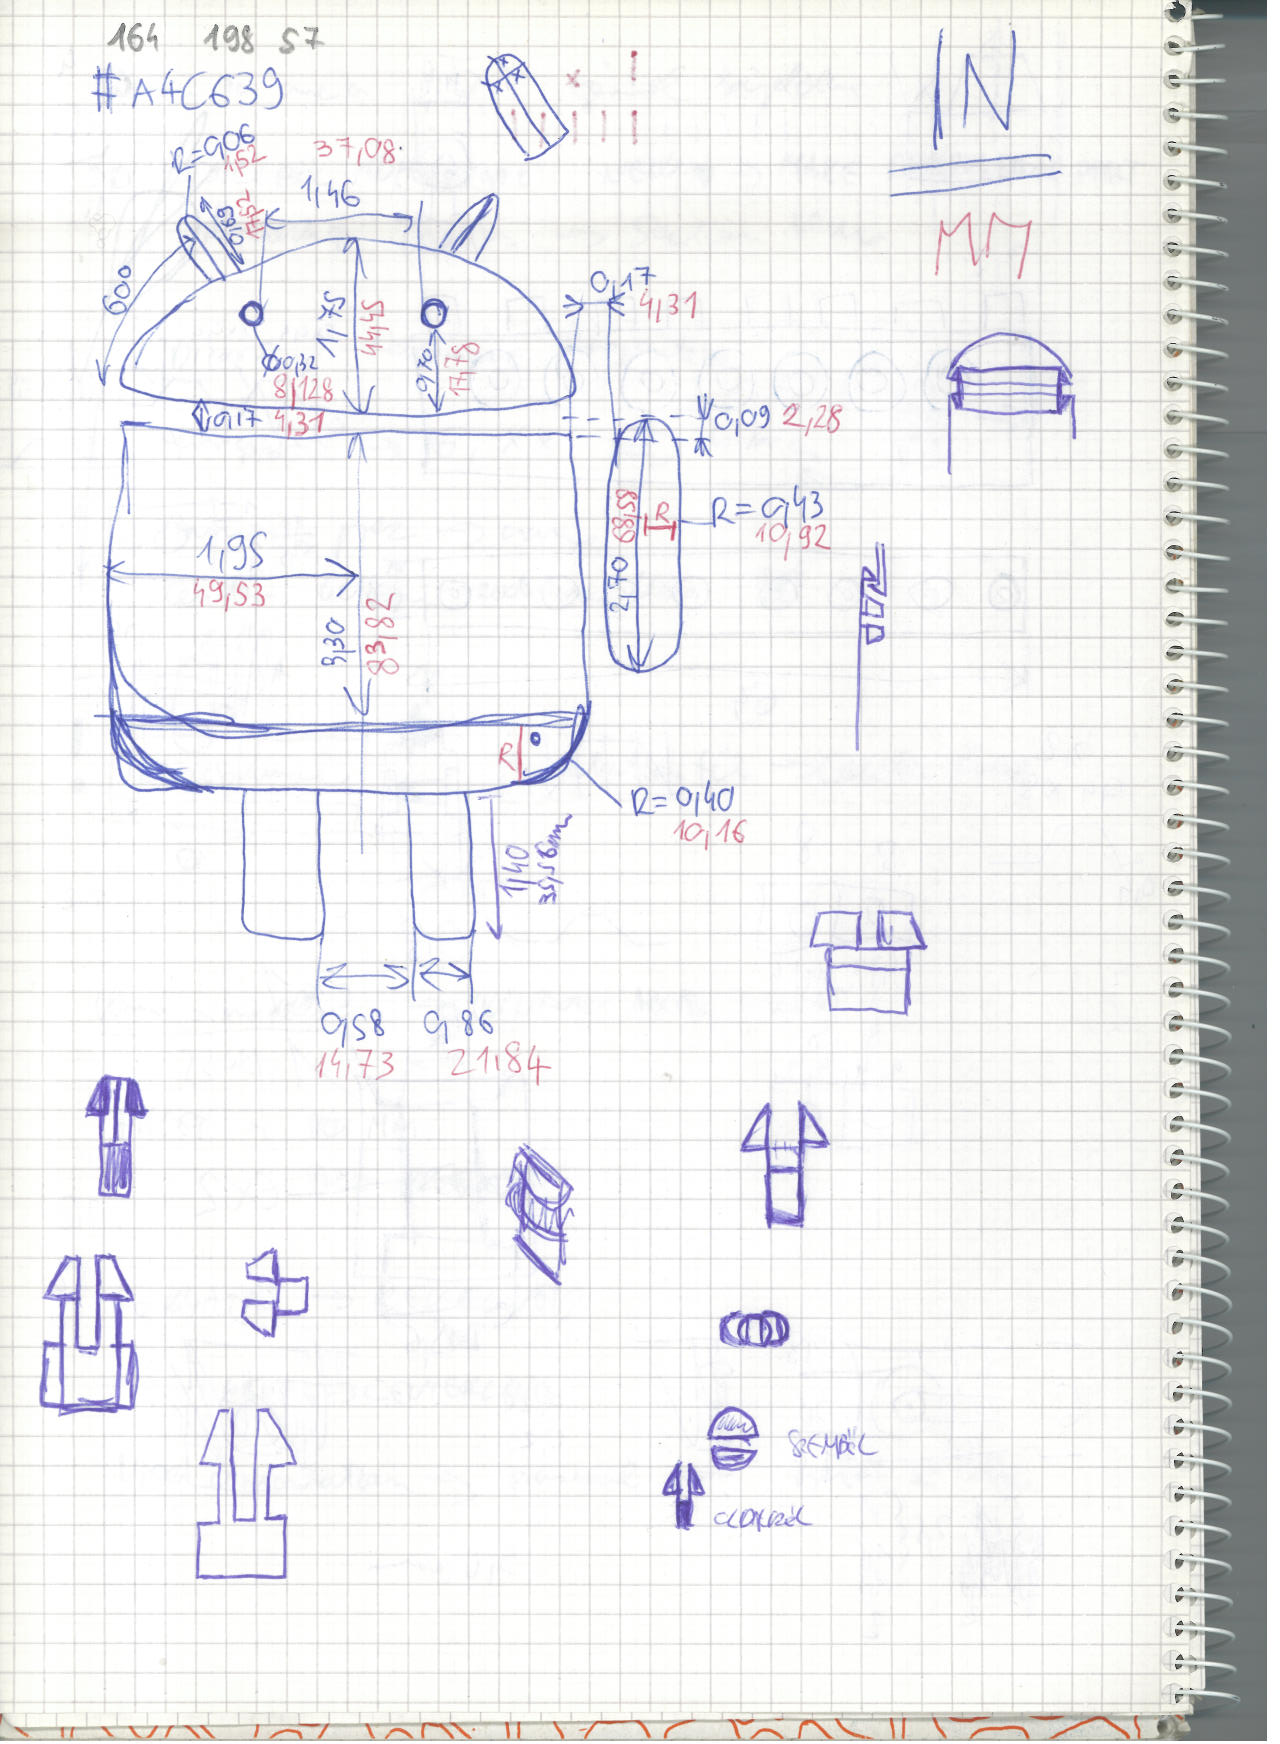 164 198 57
#A4C639
IN
MM
R=0,06
1,52
37,08
1,46
0,69
17,52
60°
1,75
44,45
0,17
4,31
Ø0,32
8,128
0,70
17,78
0,17 4,31
0,09 2,28
R=0,43
10,92
68,58
R
2,70
1,95
49,53
3,30
83,82
R
R=0,40
10,16
1,40
35,56mm
0,58
14,73
0,86
21,84
SZEMBŐL
OLDALRÓL